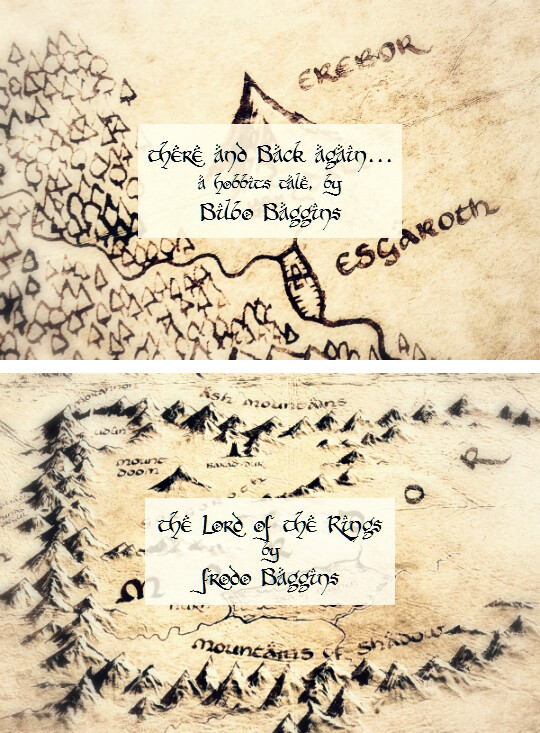 EREBOR
there and Back again...
a hobbits tale, by
Bilbo Baggins
ESGAROTH
MORANNON
ASH MOUNTAINS
UDÛN
MOUNT
DOOM
BARAD-DUR
the Lord of the Rings
by
frodo Baggins
M
O
R
NURN
MOUNTAINS OF SHADOW